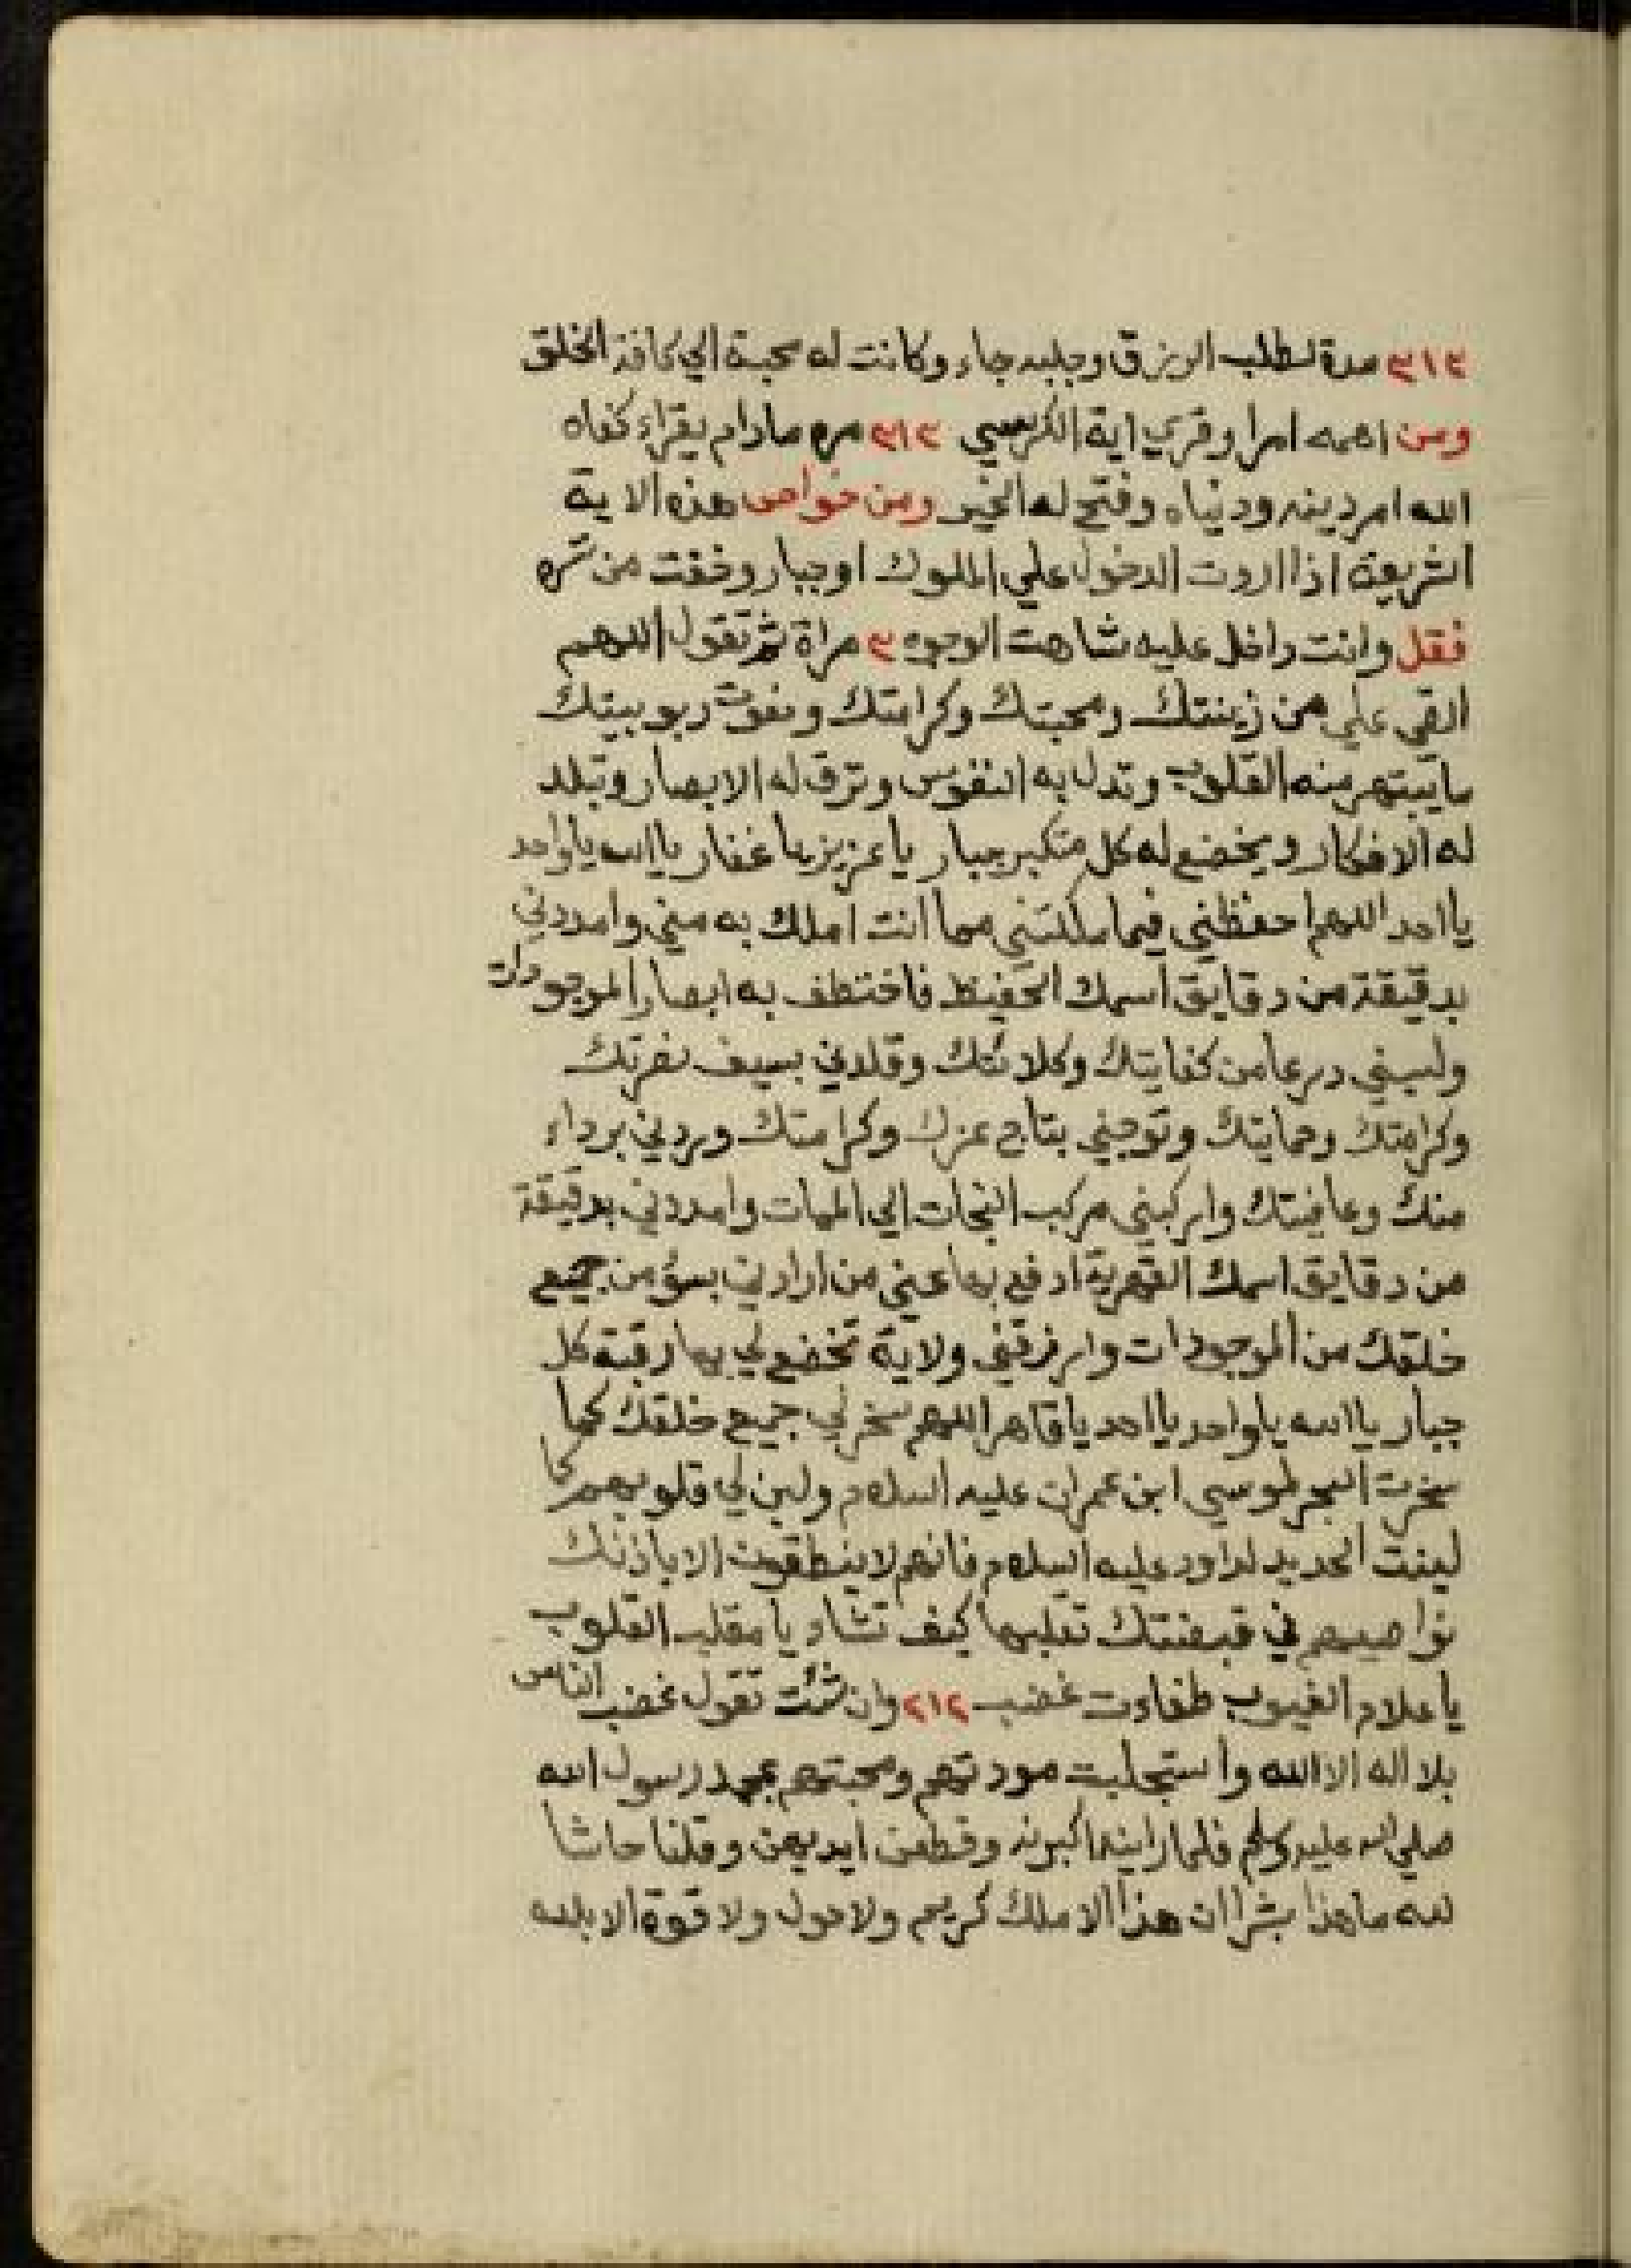 ٣١٣ مرة لطلب الرزق وجلبه جاء وكانت له محبة الي كافة الخلق
ومن اهمه امرا وقري اية الكرسي ٣١٣ مره مادام يقراء كفاه
الله امر دينه ودنياه وفتح له الخير ومن خواص هذه الاية
الشريفة اذا اردت الدخول علي الملوك او جبار وخفت من شره
فقل وانت داخل عليه شاهت الوجوه ٣ مراة ثم تقول اللهم
القي علي من زينتك ومحبتك وكرامتك ونعوت ربوبيتك
ما تبتهر منه القلوب وتذل به النفوس وترق له الابصار وتبلد
له الافكار ويخضع له كل متكبر جبار يا عزيز يا غفار يا الله يا واحد
يا احد اللهم احفظني فيما ملكتني مما انت املك به مني وامددني
بدقيقة من دقايق اسمك الحفيظ فاختطف به ابصار الموجودات
ولبسني درعا من كفايتك وكلائتك وقلدني بسيف نصرتك
وكرامتك وحمايتك وتوجني بتاج عزك وكرامتك وردني برداء
منك وعافيتك واركبني مركب النجات الي الممات وامددني بدقيقة
من دقايق اسمك القهرية ادفع بها عني من ارادني بسؤ من جميع
خلقك من الموجودات وارزقني ولاية تخضع لي بها رقبة كل
جبار يا الله يا واحد يا احد يا قاهر اللهم سخر لي جميع خلقك كما
سخرت البحر لموسي ابن عمران عليه السلام ولين لي قلوبهم كما
لينت الحديد لداود عليه السلام فانهم لا ينطقون الا باذنك
نواصيهم في قبضتك تقلبها كيف تشاء يا مقلب القلوب
يا علام الغيوب طفاءت غضب ٢١٢ وان شئت تقول غضب الناس
بلا اله الا الله واستجلبت مودتهم ومحبتهم بمحمد رسول الله
صلي الله عليه وسلم فلما راينه اكبرنه وقطعن ايديهن وقلنا حاشا
لله ما هذا بشرا ان هذا الا ملك كريم ولا حول ولا قوة الا بالله